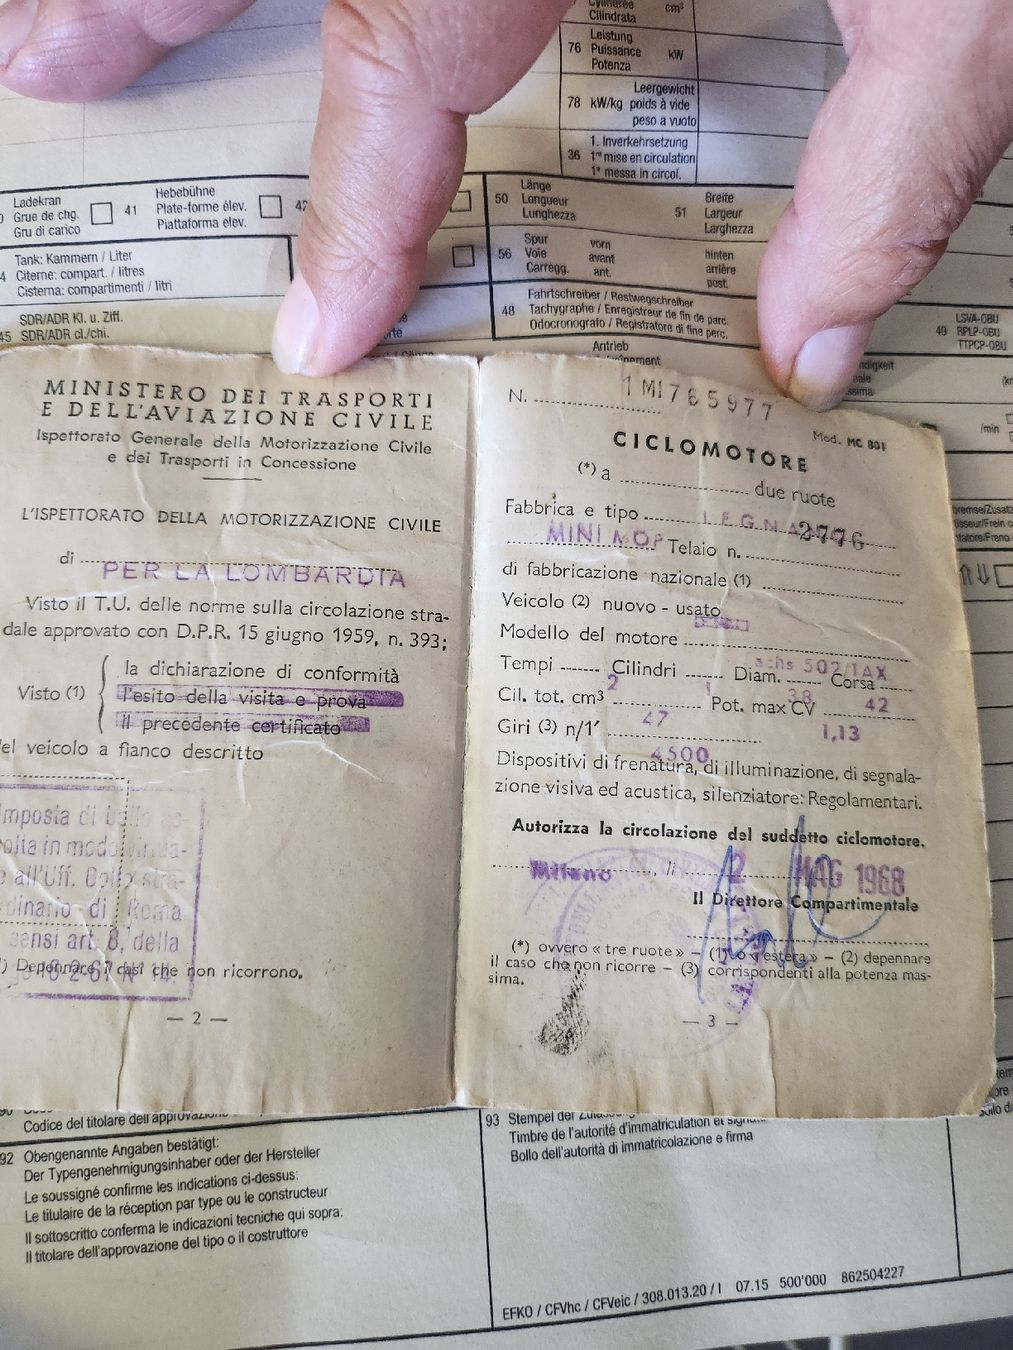 Cylindrée cm³
Cilindrata
76 Leistung kW
Puissance
Potenza
78 kW/kg Leergewicht
poids à vide
peso a vuoto
36 1. Inverkehrsetzung
1re mise en circulation
1a messa in circol.
Ladekran
Grue de chg.
Gru di carico
41 Hebebühne
Plate-forme élev.
Piattaforma elev.
42
50 Länge
Longueur
Lunghezza
51 Breite
Largeur
Larghezza
Tank: Kammern / Liter
Citerne: compart. / litres
Cisterna: compartimenti / litri
56 Spur vorn hinten
Voie avant arrière
Carregg. ant. post.
45 SDR/ADR Kl. u. Ziff.
SDR/ADR cl./chi.
48 Fahrtschreiber / Restwegschreiber
Tachygraphe / Enregistreur de fin de parc.
Odocronografo / Registratore di fine perc.
49 LSVA-OBU
RPLP-OBU
TTPCP-OBU
Antrieb
MINISTERO DEI TRASPORTI
E DELL'AVIAZIONE CIVILE
Ispettorato Generale della Motorizzazione Civile
e dei Trasporti in Concessione
L'ISPETTORATO DELLA MOTORIZZAZIONE CIVILE
di
PER LA LOMBARDIA
Visto il T.U. delle norme sulla circolazione stra-
dale approvato con D.P.R. 15 giugno 1959, n. 393;
Visto (1) la dichiarazione di conformità
l'esito della visita e prova
il precedente certificato
del veicolo a fianco descritto
Imposta di bollo as-
solta in modo virtua-
le all'Uff. Bollo stra-
dinario di Roma
sensi art. 8, della
16-2-67 N° 14.
(1) Depennare i casi che non ricorrono.
— 2 —
N. 1 MI765977
Mod. MC 801
CICLOMOTORE
(*) a due ruote
Fabbrica e tipo LEGNANO
MINI MOP Telaio n. 2776
di fabbricazione nazionale (1)
Veicolo (2) nuovo - usato
Modello del motore
achs 502/1AX
Tempi Cilindri Diam. Corsa
2 1 38 42
Cil. tot. cm³ Pot. max CV
47 1,13
Giri (3) n/1'
4500
Dispositivi di frenatura, di illuminazione, di segnala-
zione visiva ed acustica, silenziatore: Regolamentari.
Autorizza la circolazione del suddetto ciclomotore.
Milano, li 2 MAG 1968
Il Direttore Compartimentale
(*) ovvero « tre ruote » – (1) o « estera » – (2) depennare
il caso che non ricorre – (3) corrispondenti alla potenza mas-
sima.
— 3 —
Codice del titolare dell'approvazione
92 Obengenannte Angaben bestätigt:
Der Typengenehmigungsinhaber oder der Hersteller
Le soussigné confirme les indications ci-dessus:
Le titulaire de la réception par type ou le constructeur
Il sottoscritto conferma le indicazioni tecniche qui sopra:
Il titolare dell'approvazione del tipo o il costruttore
93 Stempel der
Timbre de l'autorité d'immatriculation et
Bollo dell'autorità di immatricolazione e firma
EFKO / CFVhc / CFVeic / 308.013.20 / I 07.15 500'000 862504227